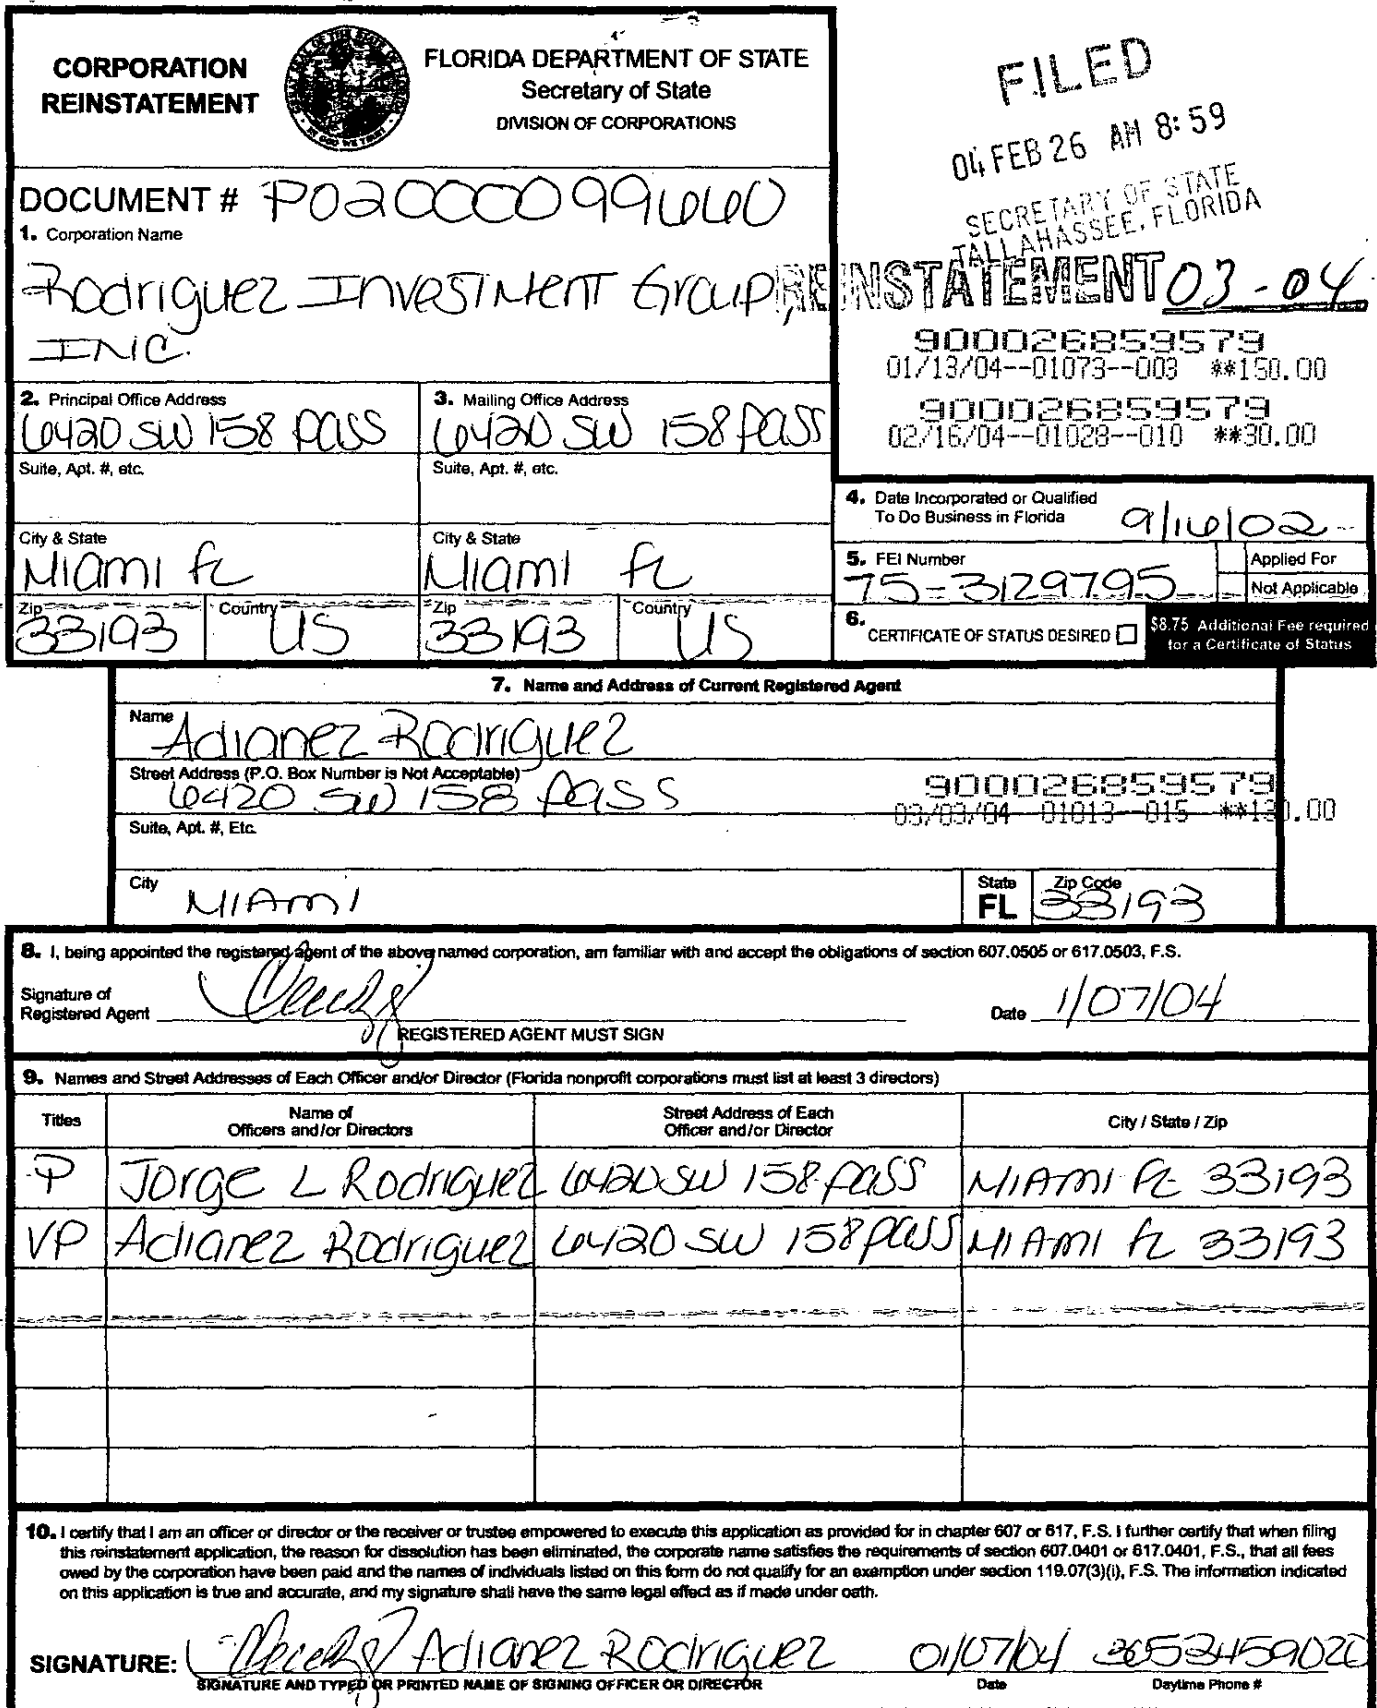 CORPORATION
REINSTATEMENT
FLORIDA DEPARTMENT OF STATE
Secretary of State
DIVISION OF CORPORATIONS
FILED
04 FEB 26 AM 8:59
SECRETARY OF STATE
TALLAHASSEE, FLORIDA
DOCUMENT # P02000099660
1. Corporation Name
Rodriguez Investment Group,
INC.
REINSTATEMENT 03-04
900026859579
01/13/04--01073--003 **150.00
900026859579
02/16/04--01028--010 **30.00
2. Principal Office Address
6420 SW 158 Pass
3. Mailing Office Address
6420 SW 158 Pass
Suite, Apt. #, etc.
Suite, Apt. #, etc.
City & State
Miami FL
City & State
Miami FL
Zip
33193
Country
US
Zip
33193
Country
US
4. Date Incorporated or Qualified
To Do Business in Florida 9/16/02
5. FEI Number
75-3129795
Applied For
Not Applicable
6.
CERTIFICATE OF STATUS DESIRED
$8.75 Additional Fee required
for a Certificate of Status
7. Name and Address of Current Registered Agent
Name
Adianez Rodriguez
Street Address (P.O. Box Number is Not Acceptable)
6420 SW 158 Pass
900026859579
03/03/04--01013--015 **130.00
Suite, Apt. #, Etc.
City
MIAMI
State
FL
Zip Code
33193
8. I, being appointed the registered agent of the above named corporation, am familiar with and accept the obligations of section 607.0505 or 617.0503, F.S.
Signature of
Registered Agent
Date 1/07/04
REGISTERED AGENT MUST SIGN
9. Names and Street Addresses of Each Officer and/or Director (Florida nonprofit corporations must list at least 3 directors)
Titles
Name of
Officers and/or Directors
Street Address of Each
Officer and/or Director
City / State / Zip
P Jorge L Rodriguez 6420 SW 158 Pass MIAMI FL 33193
VP Adianez Rodriguez 6420 SW 158 Pass MIAMI FL 33193
10. I certify that I am an officer or director or the receiver or trustee empowered to execute this application as provided for in chapter 607 or 617, F.S. I further certify that when filing
this reinstatement application, the reason for dissolution has been eliminated, the corporate name satisfies the requirements of section 607.0401 or 617.0401, F.S., that all fees
owed by the corporation have been paid and the names of individuals listed on this form do not qualify for an exemption under section 119.07(3)(i), F.S. The information indicated
on this application is true and accurate, and my signature shall have the same legal effect as if made under oath.
SIGNATURE: Adianez Rodriguez 01/07/04 3053459020
SIGNATURE AND TYPED OR PRINTED NAME OF SIGNING OFFICER OR DIRECTOR
Date
Daytime Phone #